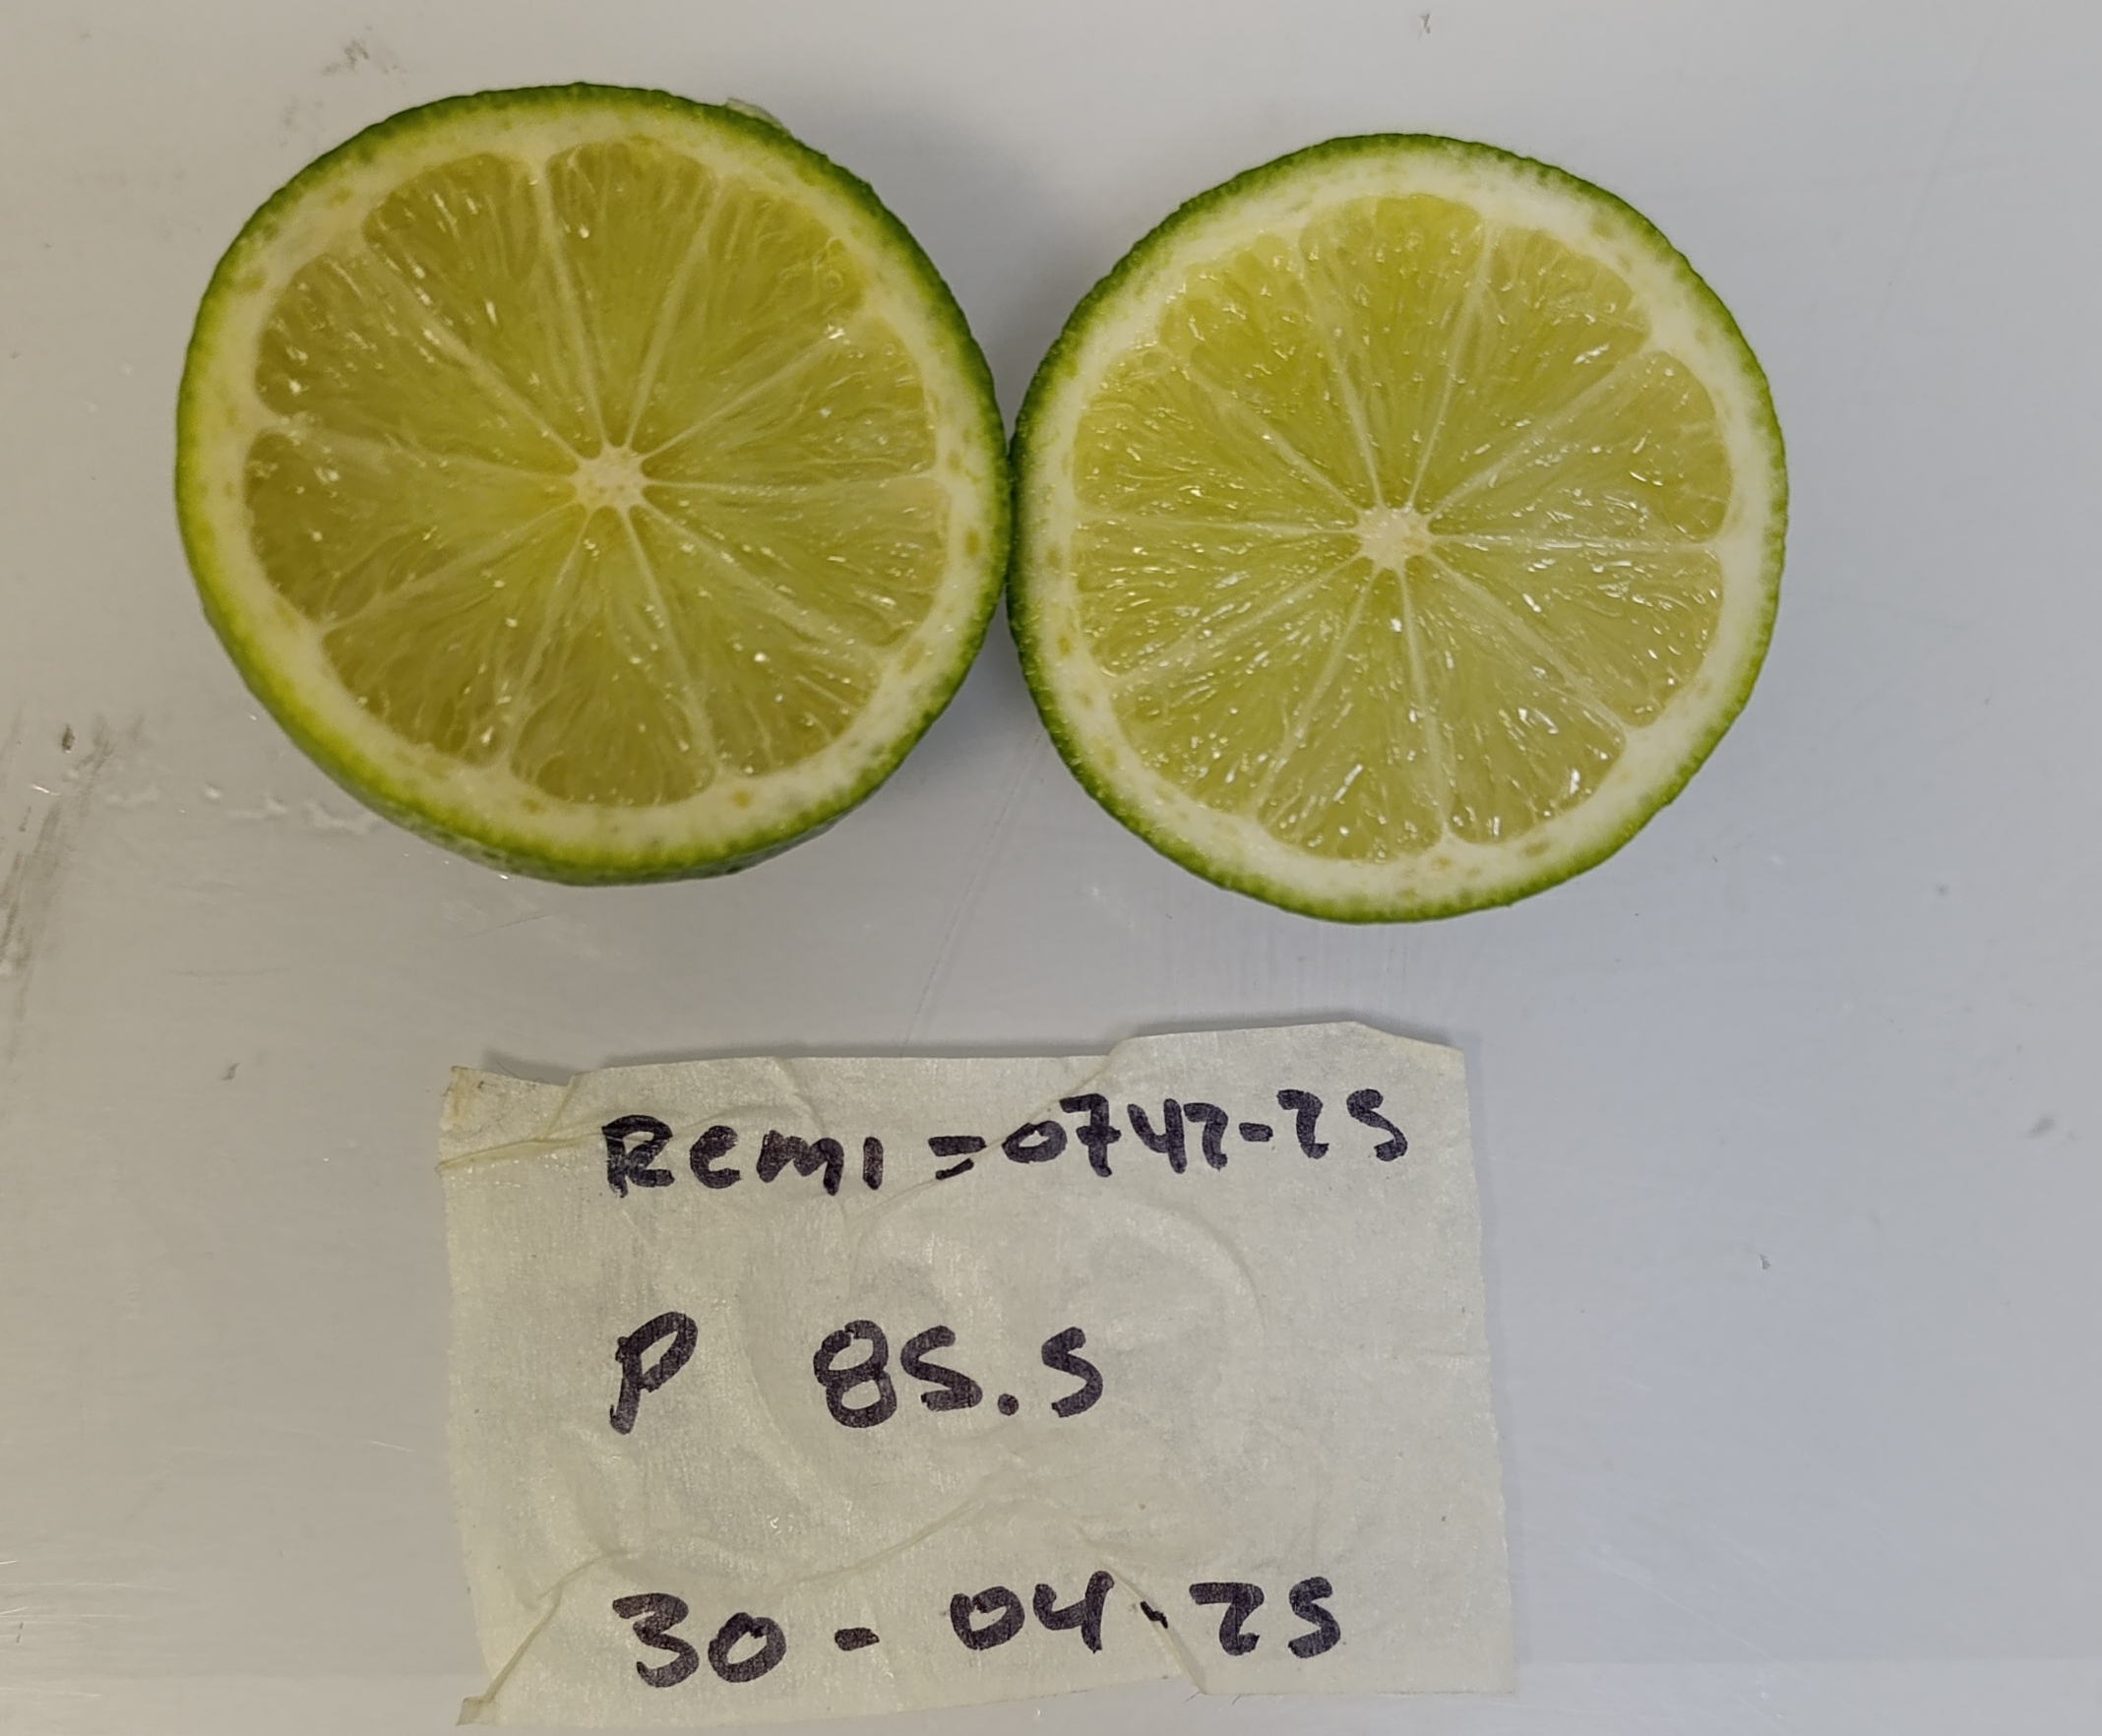 Remi = 0742-25
P 85.5
30 - 04 - 25